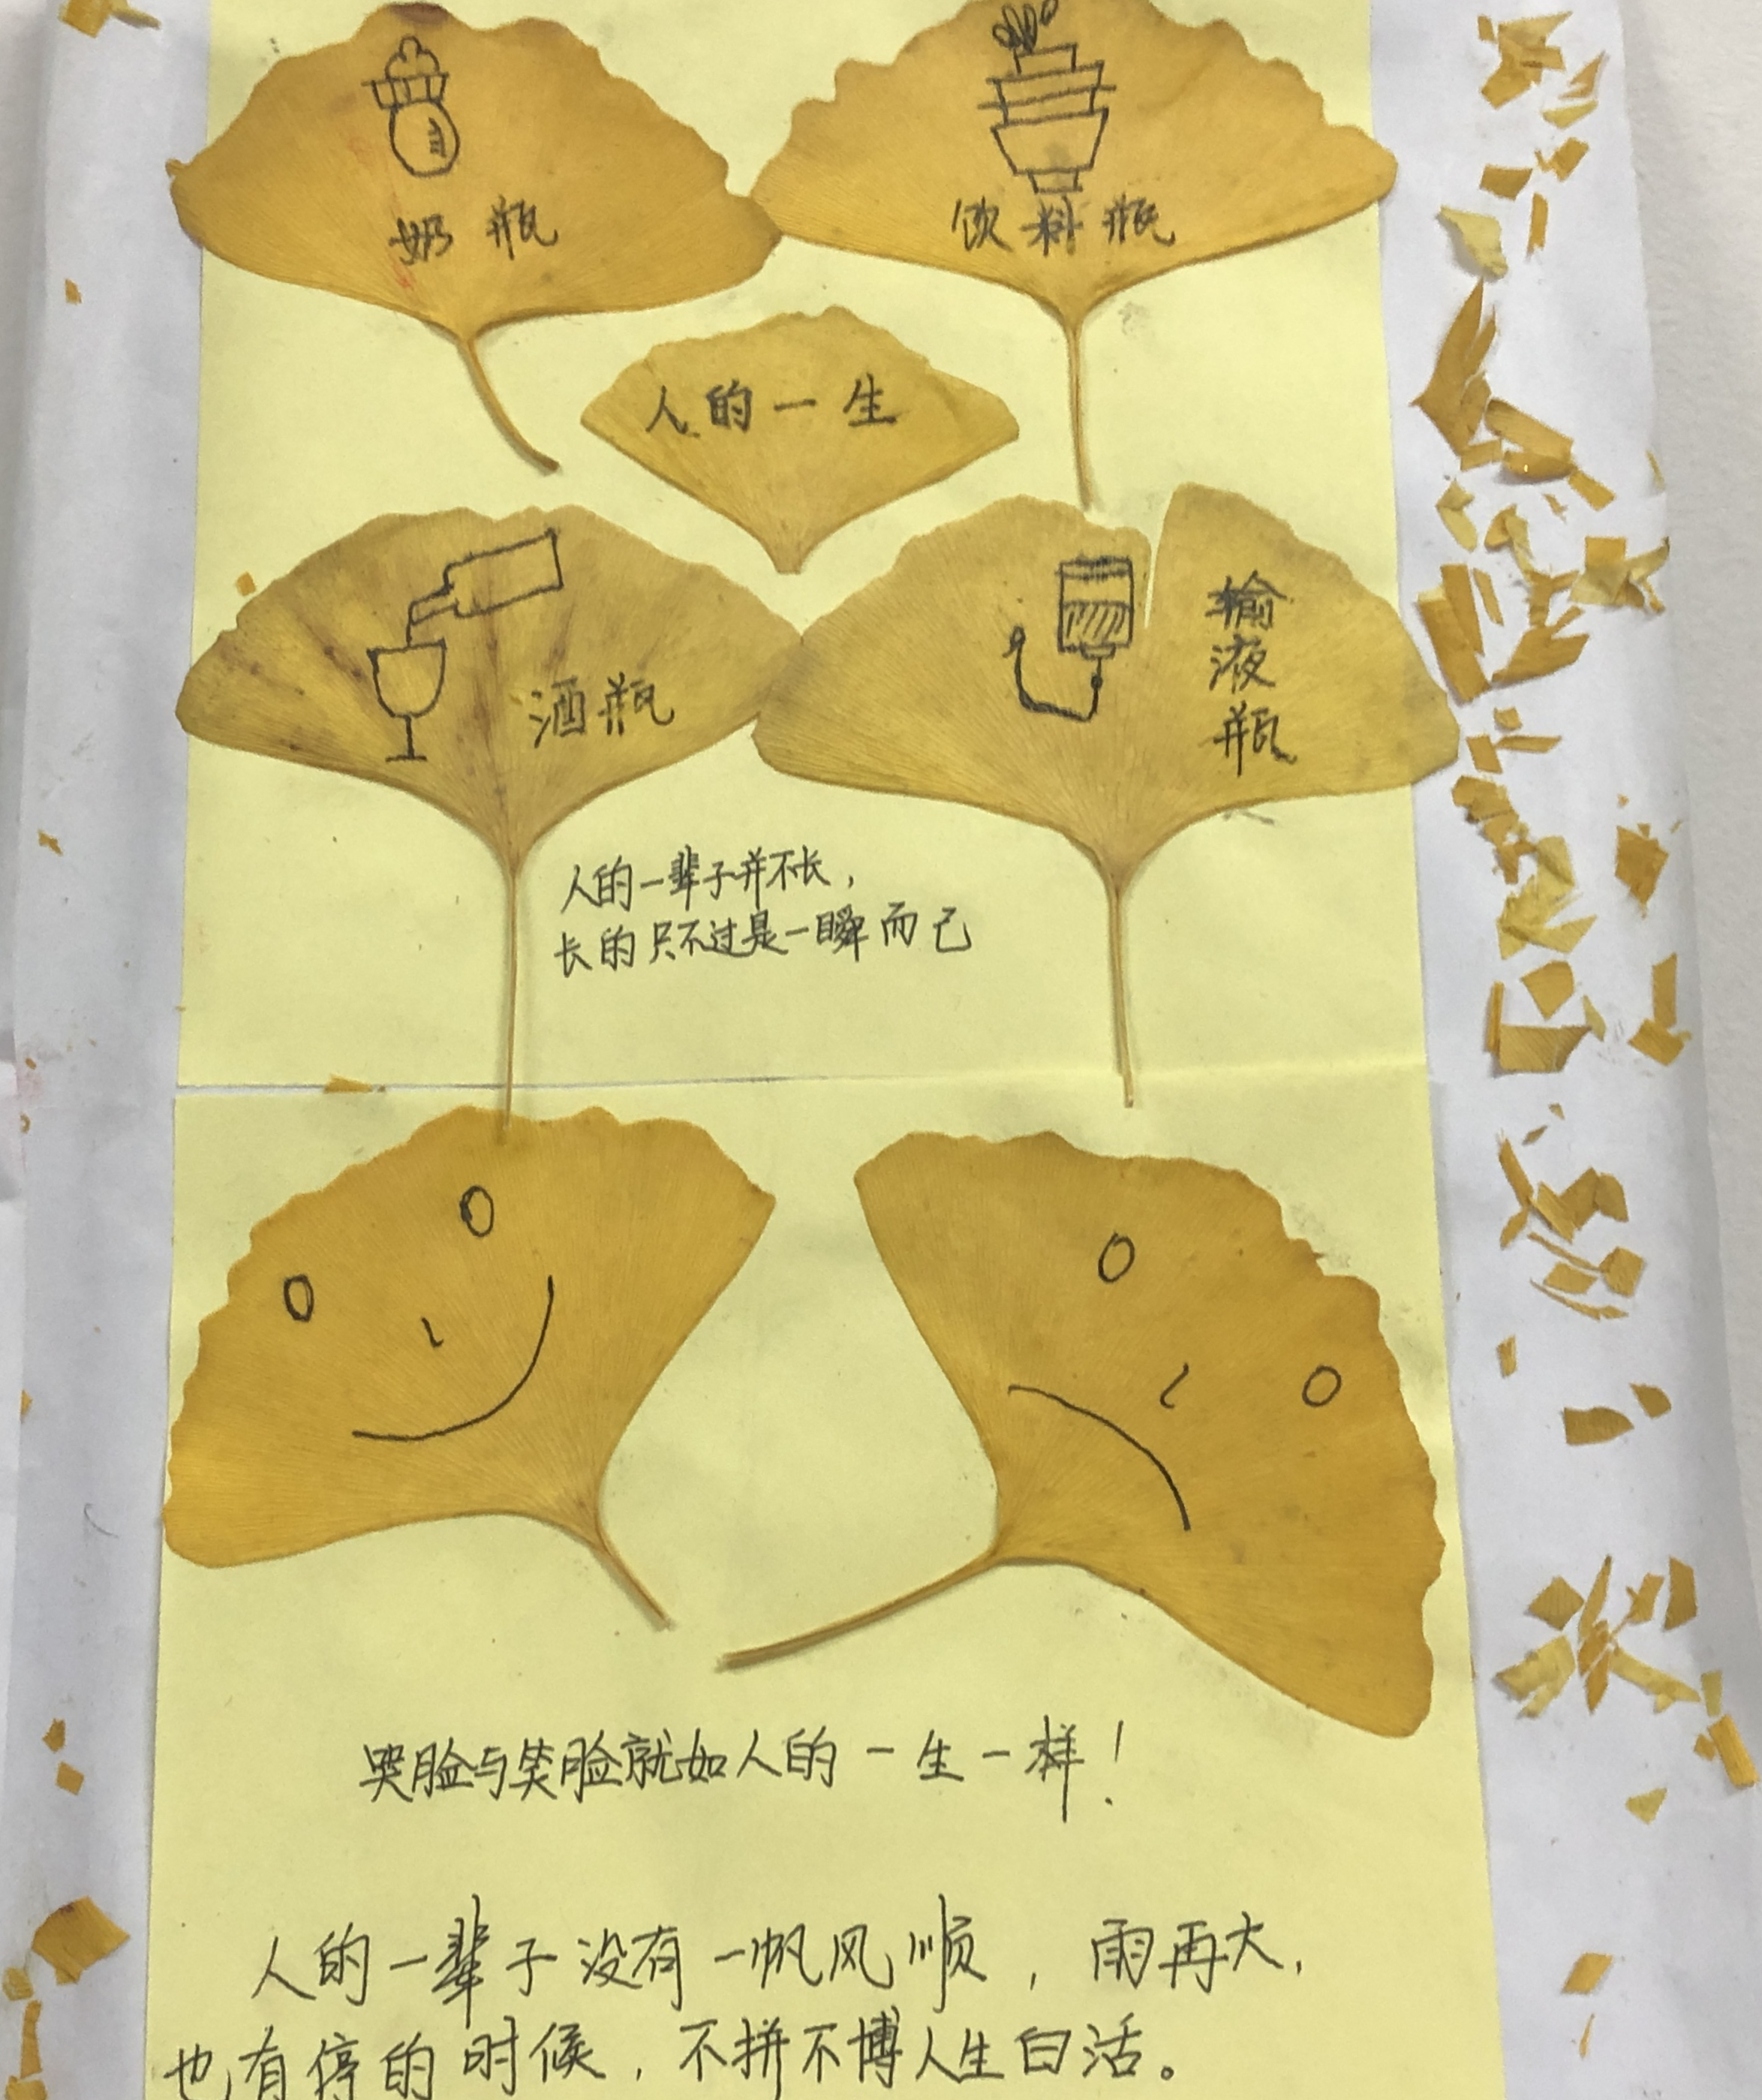 奶瓶
饮料瓶
人的一生
酒瓶
输液瓶
人的一辈子并不长，
长的只不过是一瞬而己
哭脸与笑脸就如人的一生一样！
人的一辈子没有一帆风顺，雨再大，
也有停的时候，不拼不博人生白活。